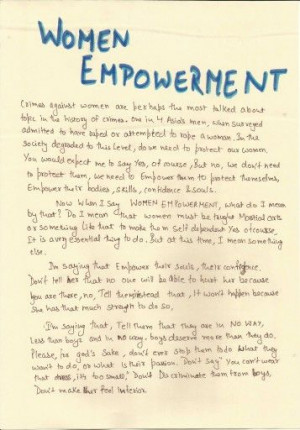 WOMEN
EMPOWERMENT
Crimes against women are perhaps the most talked about
topic in the history of crimes. One in 4 Asia's men, when surveyed
admitted to have raped or attempted to rape a woman. In the
society degraded to this level, do we need to protect our women.
You would expect me to say Yes, of course, But no, we don't need
to protect them, we need to Empower them to protect themselves,
Empower their bodies, skills, confidence & souls.
Now When I say WOMEN EMPOWERMENT, what do I mean
by that? Do I mean that women must be taught Martial arts
or something like that to make them self dependent Yes ofcourse,
It is a very essential thing to do. But at this time, I mean something
else.
I'm saying that Empower their souls, their confidence.
Don't tell her that no one will be able to hurt her because
you are there, no, Tell them instead that, it won't happen because
she has that much strength to do so,
I'm saying that, Tell there that they are in NO WAY,
Less than boys and in no way, boys deserve more than they do.
Please, for god's sake, don't ever stop them to do what they
want to do, or what is their passion. Don't say "You can't wear
that dress, it's too small," Don't Discriminate them from boys,
Don't make her Feel Inferior.